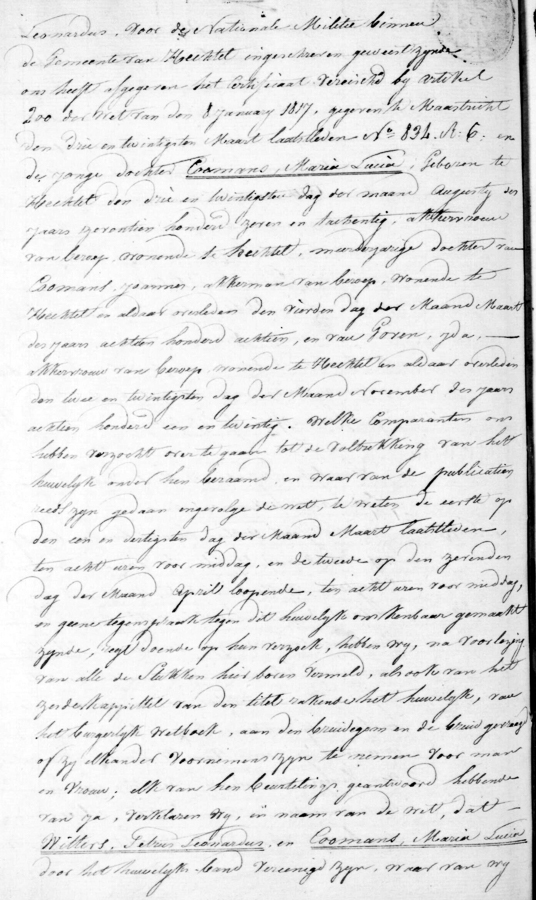 Leonardus, voor de Nationale Militie binnen
de Gemeente van Hechtel ingeschreven geweest zynde
ons heeft afgegeven het Certificaat vereischt by artikel
200 der wet van den 8 January 1817, gegeven te Maastricht
den drie en twintigsten Maart laatstleden No 834. A. 6. en
de jonge dochter Coomans, Maria Lucia, Geboren te
Hechtel den drie en twintigsten dag der maand Augusty des
jaars zeventien honderd zeven en tachentig, akkervrouw
van beroep, wonende te Hechtel, meerderjarige dochter van
Coomans, Joannes, akkerman van beroep, wonende te
Hechtel en aldaar overleden den vierden dag der Maand Maart
des jaars achtien honderd achtien, en van Goren, Ida, —
akkervrouw van beroep, wonende te Hechtel en aldaar overleden
den twee en twintigsten dag der Maand November des jaars
achtien honderd een en twintig. Welke Comparanten ons
hebben verzocht over te gaan tot de voltrekking van het
huwelyk onder hen beraamd, en waar van de publicatien
reeds zyn gedaan ingevolge de wet, te weten de eerste op
den een en dertigsten dag der Maand Maart laatstleden,
ten acht uren voor middag, en de tweede op den zevenden
dag der Maand April loopende, ten acht uren voor middag,
en geene tegenspraak tegen dit huwelyk ons kenbaar gemaakt
zynde, regt doende op hun verzoek, hebben wy, na voorlezing
van alle de Stukken hier boven vermeld, als ook van het
zesde kappittel van den titel rakende het huwelyk, van
het burgerlyk wetboek, aan den bruidegom en de bruid gevraagd
of zy elkander voornemens zyn te nemen voor man
en vrouw; elk van hen beurtelings geantwoord hebbende
van ja, verklaren wy, in naam van de wet, dat —
Witters, Petrus Leonardus, en Coomans, Maria Lucia
door het huwelyks band vereenigd zyn, waar van wy